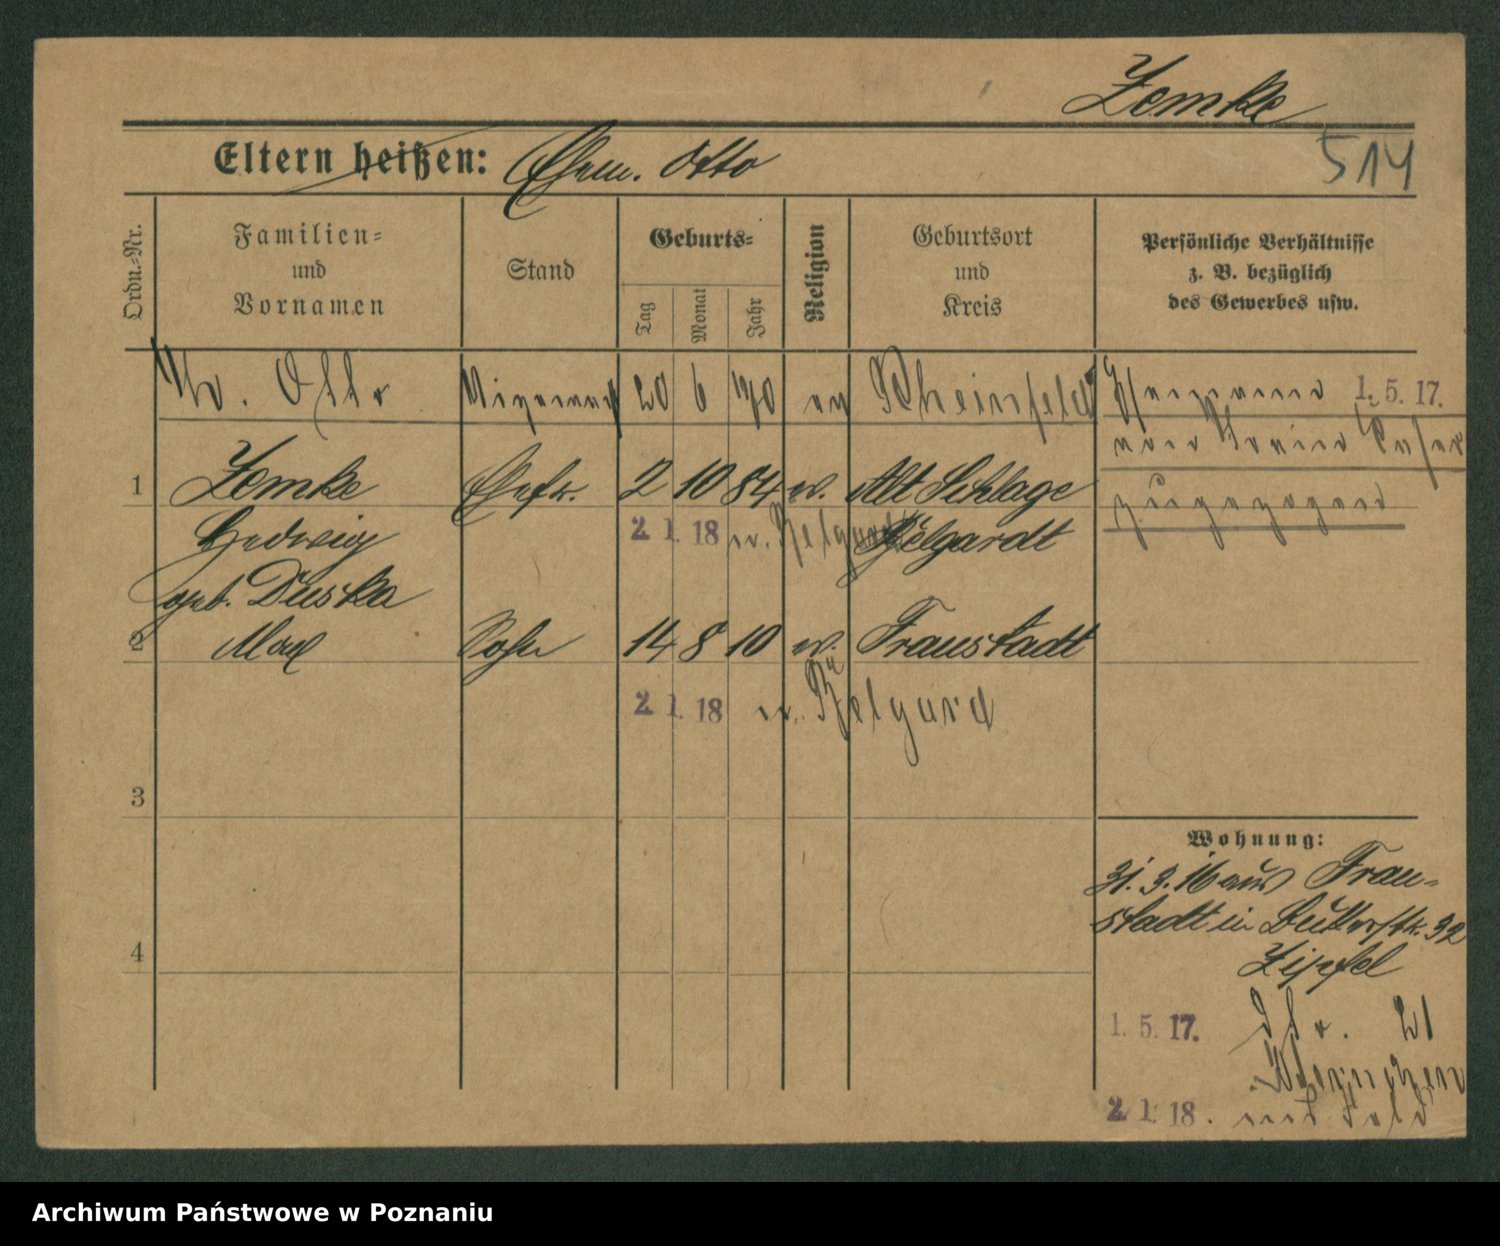 Zemke
514
Eltern heißen: Ehem. Otto
Ordn.=Nr.
Familien=
und
Vornamen
Stand
Geburts=
Tag
Monat
Jahr
Religion
Geburtsort
und
Kreis
Persönliche Verhältnisse
z. B. bezüglich
des Gewerbes usw.
Otto 20 6 Scheinfeld 1. 5. 17.
1 Zemke Ehefr. 2 10 84 ev. Alt Schlage
zugezogen
Hedwig 2. 1. 18 n. Belgard Belgardt
geb. Duska
2 Max Sohn 14 8 10 ev. Fraustadt
2. 1. 18 n. Belgard
3
Wohnung:
31. 3. 16 aus Frau-
stadt in 32
4
Zipfel
1. 5. 17. dto. 21
2. 1. 18.
Archiwum Państwowe w Poznaniu